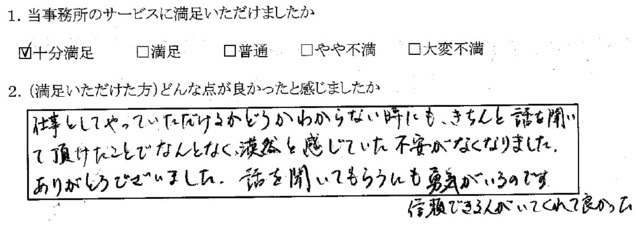 1. 当事務所のサービスに満足いただけましたか
☑十分満足 □満足 □普通 □やや不満 □大変不満
2. (満足いただけた方)どんな点が良かったと感じましたか
仕事としてやっていただけるかどうかわからない時にも、きちんと話を聞い
て頂けたことでなんとなく、漠然と感じていた不安がなくなりました。
ありがとうございました。話を聞いてもらうにも勇気がいるのです
信頼できる人がいてくれて良かった